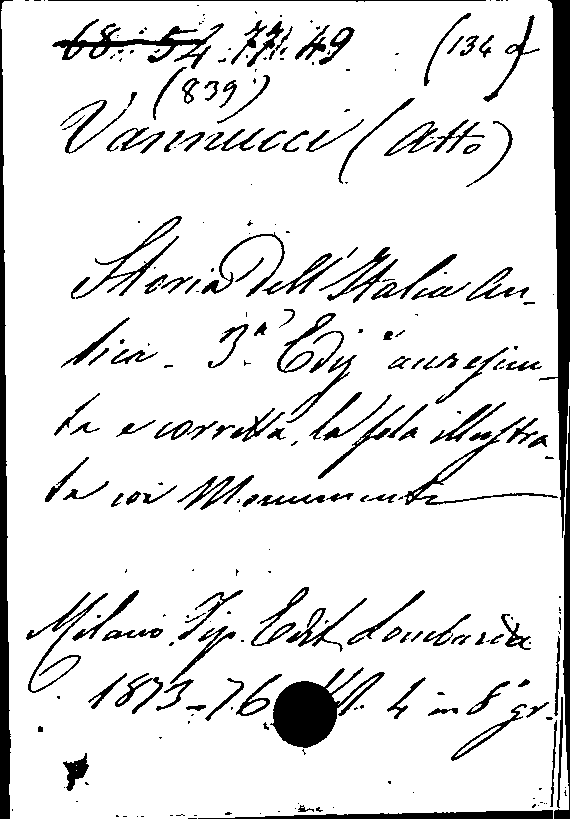 68. 54. 77. 49 (134 a)
(839)
Vannucci (Atto)
Storia dell'Italia An-
tica - 3ª Ediz.e
ta e corretta, la sola illustra-
ta coi Monumenti
Milano, Tip. Edit. Lombarda
1873-76 Vl. 4 in 8° gr.